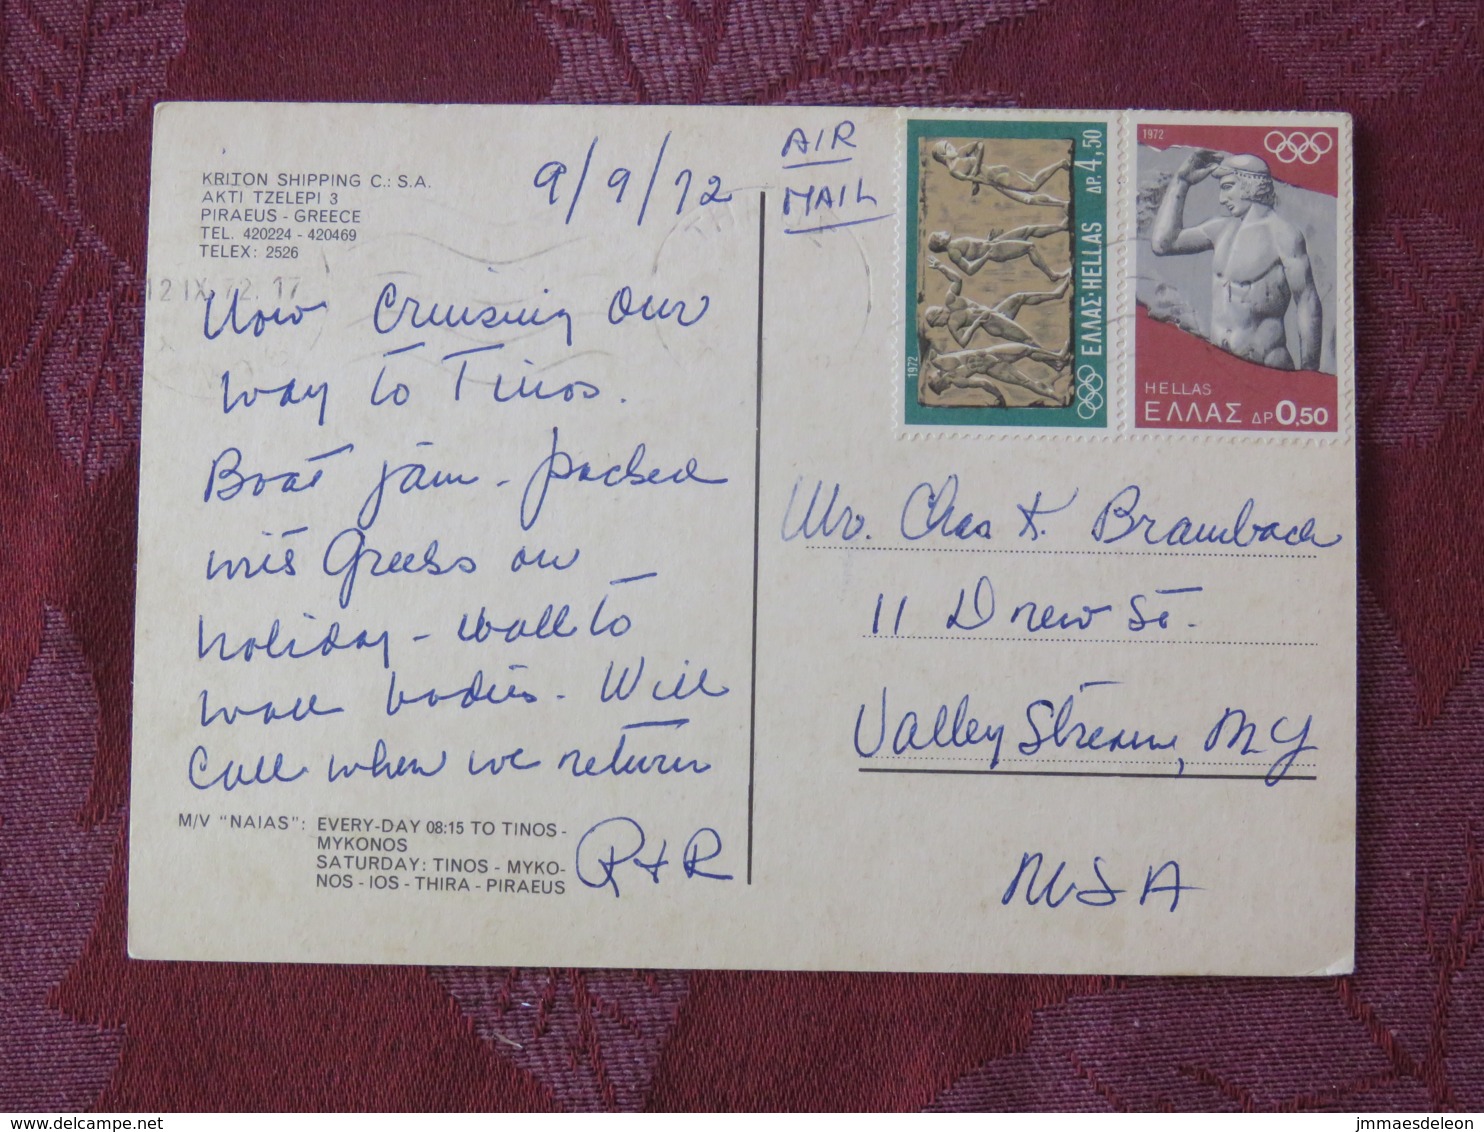 KRITON SHIPPING C.: S.A.
AKTI TZELEPI 3
PIRAEUS - GREECE
TEL. 420224 - 420469
TELEX: 2526
9/9/72
AIR
MAIL
12 IX 72. 17
Now Cruising our
way to Tinos.
Boat jam-packed
with Greeks on
holiday - wall to
wall bodies. Will
Call when we return
R+R
M/V "NAIAS": EVERY-DAY 08:15 TO TINOS -
MYKONOS
SATURDAY: TINOS - MYKO-
NOS - IOS - THIRA - PIRAEUS
1972
ΕΛΛΑΣ·HELLAS ΔΡ. 4,50
1972
HELLAS
ΕΛΛΑΣ ΔΡ 0,50
Mr. Chas K. Brambach
11 Drew St.
Valley Stream, NY
USA
delcampe.net
jmmaesdeleon